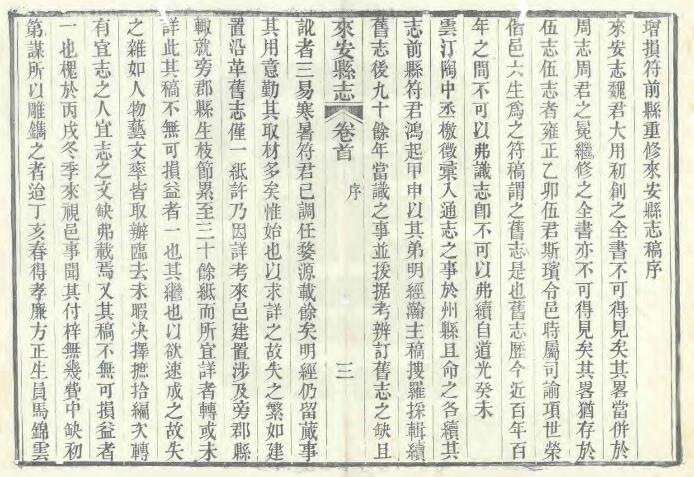 增損符前縣重修來安縣志稿序
來安志魏君大用初創之全書不可得見矣其畧當併於
周志周君之冕繼修之全書亦不可得見矣其畧猶存於
伍志伍志者雍正乙卯伍君斯璸令邑時屬司諭項世榮
偕邑六生爲之符稿謂之舊志是也舊志歷今近百年百
年之間不可以弗識志卽不可以弗續自道光癸未
雲汀陶中丞檄徵彙入通志之事於州縣且命之各續其
志前縣符君鴻起甲申以其弟明經瀚主稿搜羅採輯續
舊志後九十餘年當識之事並援据考辨訂舊志之缺且
來安縣志 卷首 序 三
訛者三易寒暑符君已調任婺源載餘矣明經仍留蕆事
其用意勤其取材多矣惟始也以求詳之故失之繁如建
置沿革舊志僅一紙許乃因詳考來邑建置涉及旁郡縣
輙就旁郡縣生枝節累至三十餘紙而所宜詳者轉或未
詳此其稿不無可損益者一也其繼也以欲速成之故失
之雜如人物藝文率皆取辦臨去未暇決擇摭拾編次轉
有宜志之人宜志之文缺弗載焉又其稿不無可損益者
一也槐於丙戌冬季來視邑事聞其付梓無幾費中缺初
第謀所以雕鐫之者迨丁亥春得孝廉方正生員馬錦雲